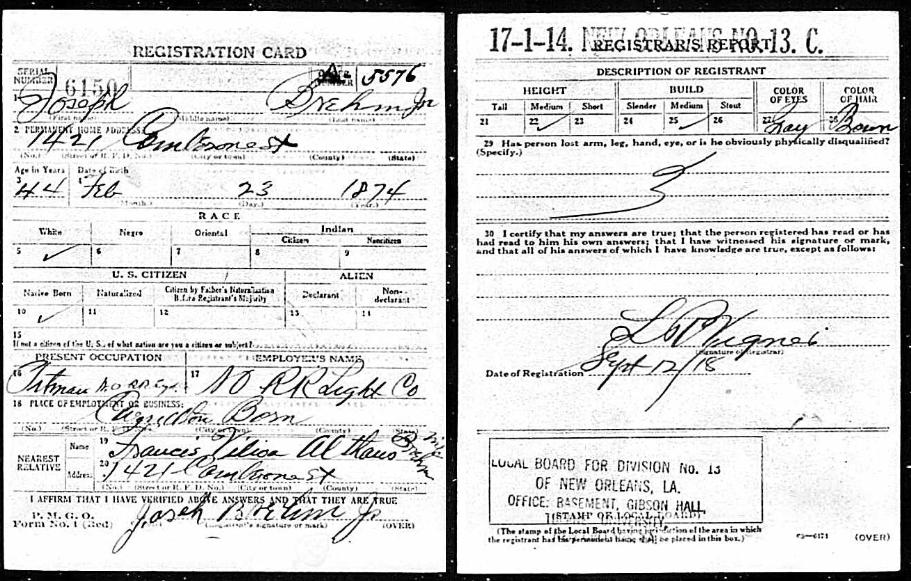 REGISTRATION CARD
SERIAL NUMBER 6150 ORDER NUMBER A 5576
1 Joseph Brehm Jr
(First name) (Middle name) (Last name)
2 PERMANENT HOME ADDRESS:
1421 st
(No.) (Street or R. F. D. No.) (City or town) (County) (State)
Age in Years Date of Birth
3 44 4 Feb 23 1874
(Month.) (Day.) (Year.)
RACE
White Negro Oriental Indian
Citizen Noncitizen
5 ✓ 6 7 8 9
U. S. CITIZEN ALIEN
Native Born Naturalized Citizen by Father's Naturalization Before Registrant's Majority Declarant Non-declarant
10 ✓ 11 12 13 14
15
If not a citizen of the U. S., of what nation are you a citizen or subject?
PRESENT OCCUPATION EMPLOYER'S NAME
16 Pitman 17 N O RR Light Co
18 PLACE OF EMPLOYMENT OR BUSINESS:
Barn
(No.) (Street or R. F. D. No.) (City or town) (County) (State)
NEAREST RELATIVE
Name 19 Francis Althaus Brehm wife
Address 20 1421 st
(No.) (Street or R. F. D. No.) (City or town) (County) (State)
I AFFIRM THAT I HAVE VERIFIED ABOVE ANSWERS AND THAT THEY ARE TRUE
P. M. G. O.
Form No. 1 (Red) Joseph Brehm Jr
(Registrant's signature or mark) (OVER)
17-1-14. NEW ORLEANS NO. 13. C.
REGISTRAR'S REPORT
DESCRIPTION OF REGISTRANT
HEIGHT BUILD COLOR OF EYES COLOR OF HAIR
Tall Medium Short Slender Medium Stout
21 22 ✓ 23 24 25 ✓ 26 27 Gray 28 Brown
29 Has person lost arm, leg, hand, eye, or is he obviously physically disqualified?
(Specify.)
30 I certify that my answers are true; that the person registered has read or has
had read to him his own answers; that I have witnessed his signature or mark,
and that all of his answers of which I have knowledge are true, except as follows:
(Signature of Registrar)
Date of Registration Sept 12/18
LOCAL BOARD FOR DIVISION No. 13
OF NEW ORLEANS, LA.
OFFICE: BASEMENT, GIBSON HALL,
(STAMP OF LOCAL BOARD)
UNIVERSITY
(The stamp of the Local Board having jurisdiction of the area in which
the registrant has his permanent home shall be placed in this box.)
03—6171 (OVER)